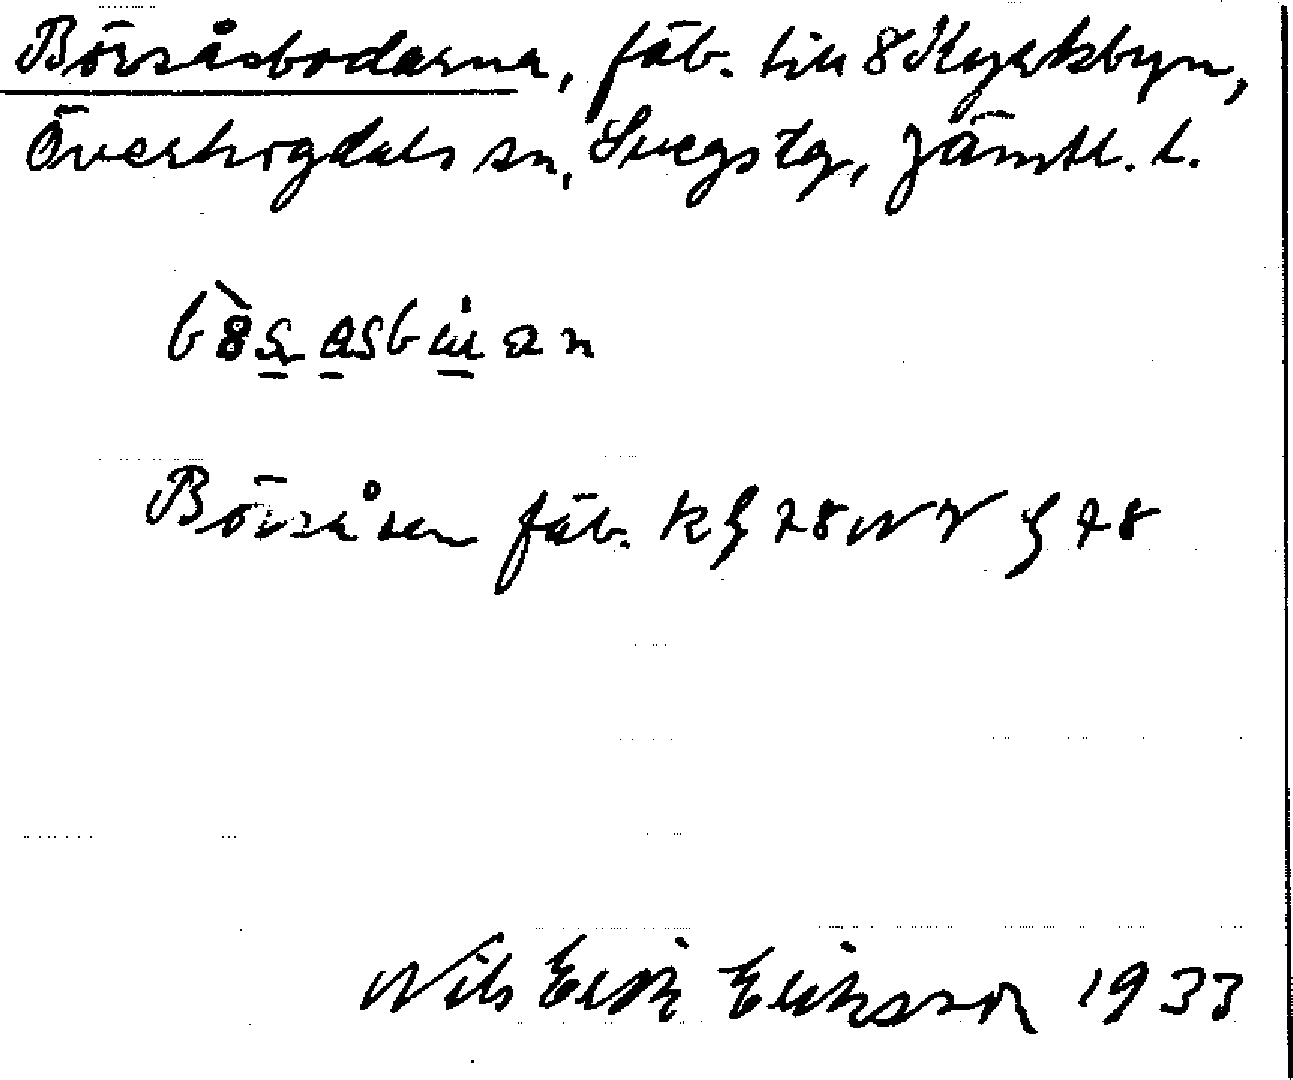 Börsåsbodarna, fäb. till 8 Kyrkbyn,
Överhogdals sn, Svegs tg, Jämtl. l.
Börsåsen fäb. k 28 NV 78
Nils Erik Eriksson 1933